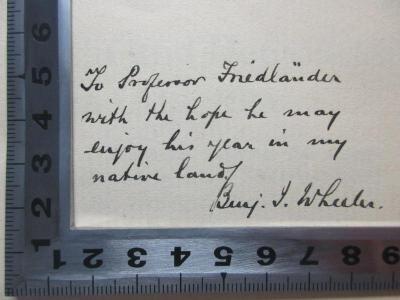 To Professor Friedländer
with the hope he may
enjoy his year in my
native land.
Benj. I. Wheeler.
6
5
4
3
2
1
1 2 3 4 5 6 7 8 9